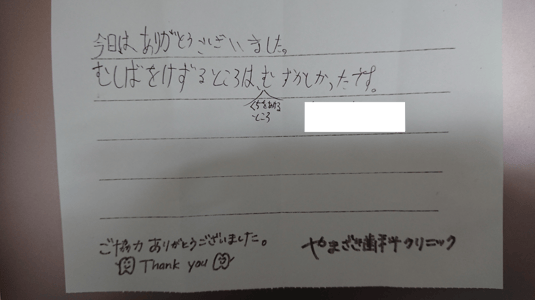 今日は、ありがとうございました。
むしばをけずるところはむずかしかったです。
ところ
ご協力ありがとうございました。
Thank you
やまざき歯科クリニック